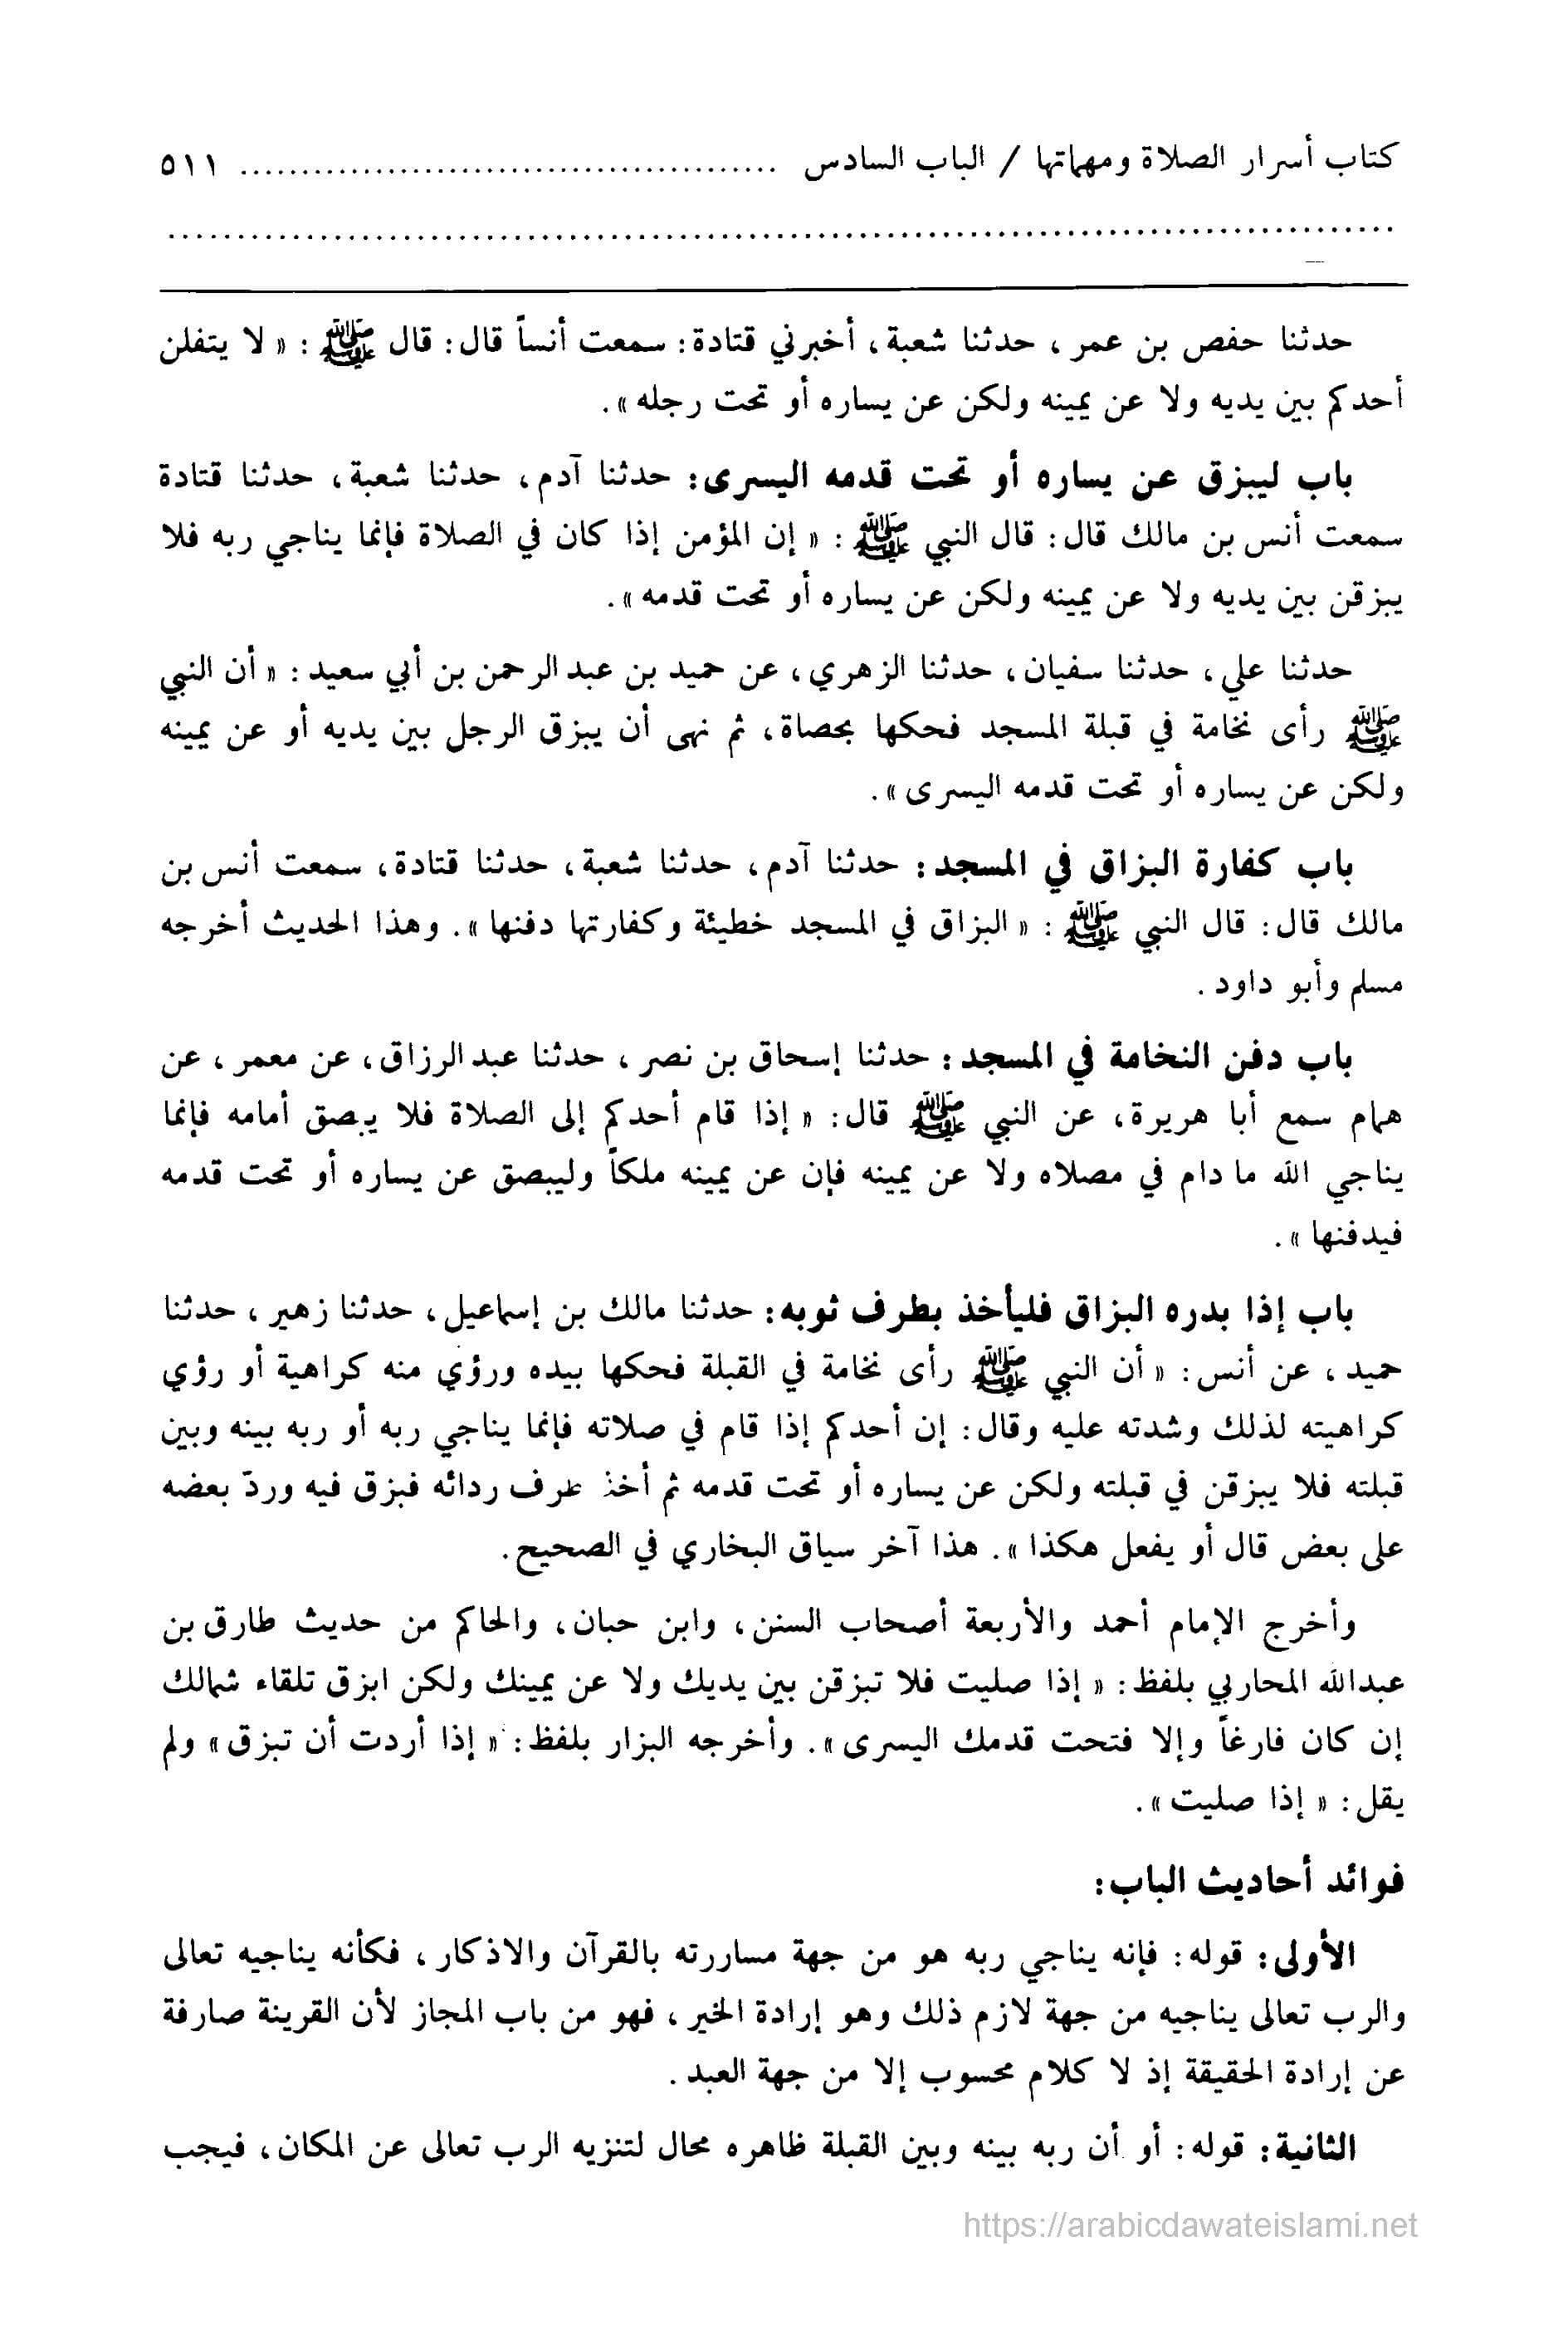 كتاب أسرار الصلاة ومهماتها / الباب السادس ............................................ ٥١١
....................................................................................................
حدثنا حفص بن عمر ، حدثنا شعبة ، أخبرني قتادة : سمعت أنساً قال : قال ﷺ : « لا يتفلن
أحدكم بين يديه ولا عن يمينه ولكن عن يساره أو تحت رجله » .
باب ليبزق عن يساره أو تحت قدمه اليسرى : حدثنا آدم ، حدثنا شعبة ، حدثنا قتادة
سمعت أنس بن مالك قال : قال النبي ﷺ : « إن المؤمن إذا كان في الصلاة فإنما يناجي ربه فلا
يبزقن بين يديه ولا عن يمينه ولكن عن يساره أو تحت قدمه » .
حدثنا علي ، حدثنا سفيان ، حدثنا الزهري ، عن حميد بن عبد الرحمن بن أبي سعيد : « أن النبي
ﷺ رأى نخامة في قبلة المسجد فحكها بحصاة ، ثم نهى أن يبزق الرجل بين يديه أو عن يمينه
ولكن عن يساره أو تحت قدمه اليسرى » .
باب كفارة البزاق في المسجد : حدثنا آدم ، حدثنا شعبة ، حدثنا قتادة ، سمعت أنس بن
مالك قال : قال النبي ﷺ : « البزاق في المسجد خطيئة وكفارتها دفنها » . وهذا الحديث أخرجه
مسلم وأبو داود .
باب دفن النخامة في المسجد : حدثنا إسحاق بن نصر ، حدثنا عبد الرزاق ، عن معمر ، عن
همام سمع أبا هريرة ، عن النبي ﷺ قال : « إذا قام أحدكم إلى الصلاة فلا يبصق أمامه فإنما
يناجي الله ما دام في مصلاه ولا عن يمينه فإن عن يمينه ملكاً وليبصق عن يساره أو تحت قدمه
فيدفنها » .
باب إذا بدره البزاق فليأخذ بطرف ثوبه : حدثنا مالك بن إسماعيل ، حدثنا زهير ، حدثنا
حميد ، عن أنس : « أن النبي ﷺ رأى نخامة في القبلة فحكها بيده ورؤي منه كراهية أو رؤي
كراهيته لذلك وشدته عليه وقال : إن أحدكم إذا قام في صلاته فإنما يناجي ربه أو ربه بينه وبين
قبلته فلا يبزقن في قبلته ولكن عن يساره أو تحت قدمه ثم أخذ طرف ردائه فبزق فيه وردّ بعضه
على بعض قال أو يفعل هكذا » . هذا آخر سياق البخاري في الصحيح .
وأخرج الإمام أحمد والأربعة أصحاب السنن ، وابن حبان ، والحاكم من حديث طارق بن
عبدالله المحاربي بلفظ : « إذا صليت فلا تبزقن بين يديك ولا عن يمينك ولكن ابزق تلقاء شمالك
إن كان فارغاً وإلا فتحت قدمك اليسرى » . وأخرجه البزار بلفظ : « إذا أردت أن تبزق » ولم
يقل : « إذا صليت » .
فوائد أحاديث الباب :
الأولى : قوله : فإنه يناجي ربه هو من جهة مساررته بالقرآن والاذكار ، فكأنه يناجيه تعالى
والرب تعالى يناجيه من جهة لازم ذلك وهو إرادة الخير ، فهو من باب المجاز لأن القرينة صارفة
عن إرادة الحقيقة إذ لا كلام محسوب إلا من جهة العبد .
الثانية : قوله : أو أن ربه بينه وبين القبلة ظاهره محال لتنزيه الرب تعالى عن المكان ، فيجب
https://arabicdawateislami.net